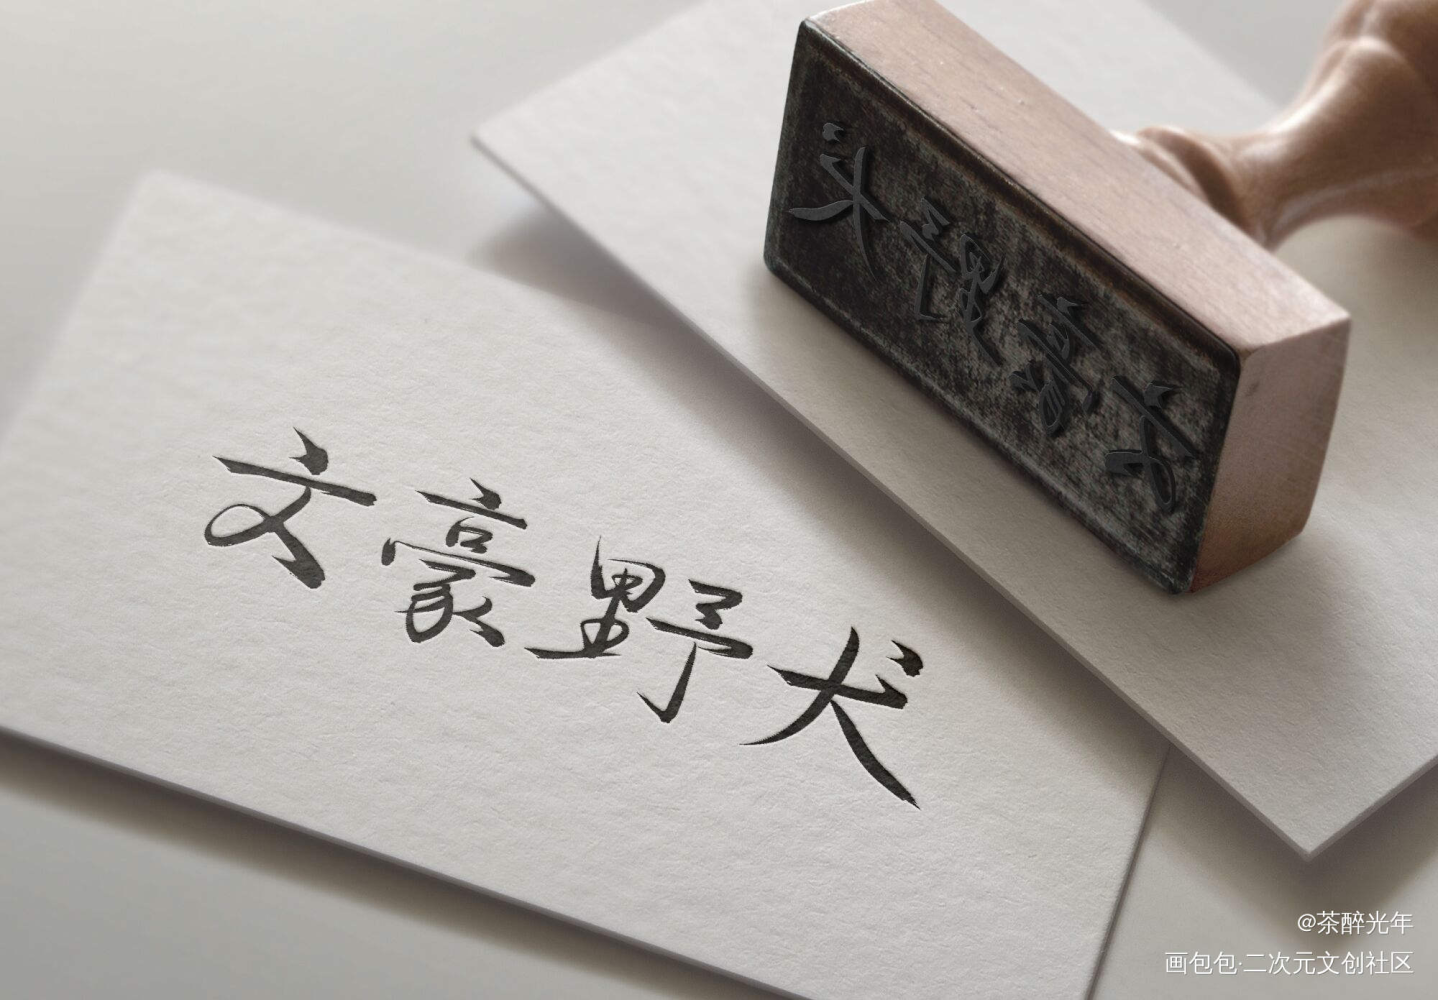 文豪野犬
文豪野犬
@茶醉光年
画包包·二次元文创社区